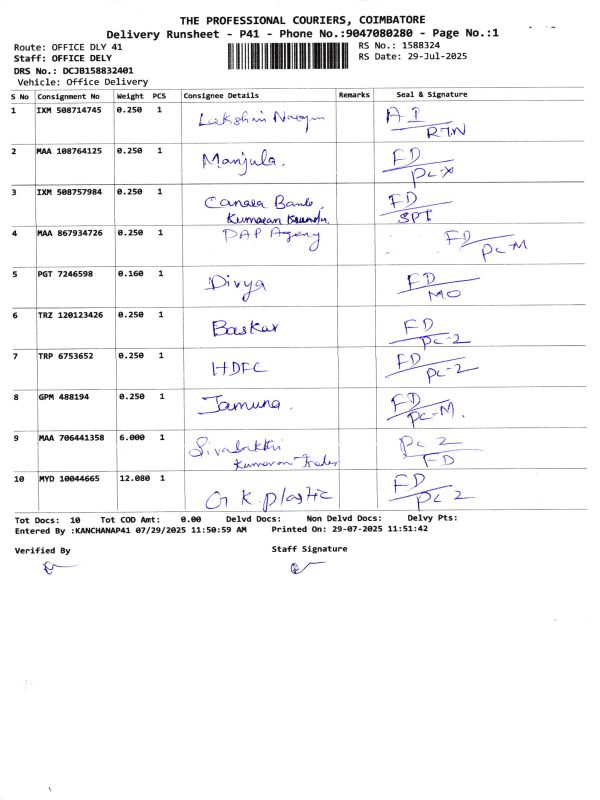 THE PROFESSIONAL COURIERS, COIMBATORE
Delivery Runsheet - P41 - Phone No.:9047080280 - Page No.:1
Route: OFFICE DLY 41 RS No.: 1588324
Staff: OFFICE DELY RS Date: 29-Jul-2025
DRS No.: DCJB158832401
Vehicle: Office Delivery
S No Consignment No Weight PCS Consignee Details Remarks Seal & Signature
1 IXM 508714745 0.250 1 Lakshmi A I
RTN
2 MAA 108764125 0.250 1 Manjula. FD
PC-X
3 IXM 508757984 0.250 1 Canara Bank, FD
Kumaran SPT
4 MAA 867934726 0.250 1 PAP Agency FD
PC-M
5 PGT 7246598 0.160 1 Divya FD
MO
6 TRZ 120123426 0.250 1 Baskar FD
PC-2
7 TRP 6753652 0.250 1 HDFC FD
PC-2
8 GPM 488194 0.250 1 Jamuna. FD
PC-M.
9 MAA 706441358 6.000 1 PC 2
Kumaran Trades FD
10 MYD 10044665 12.080 1 G K. plastic FD
PC 2
Tot Docs: 10 Tot COD Amt: 0.00 Delvd Docs: Non Delvd Docs: Delvy Pts:
Entered By :KANCHANAP41 07/29/2025 11:50:59 AM Printed On: 29-07-2025 11:51:42
Verified By Staff Signature